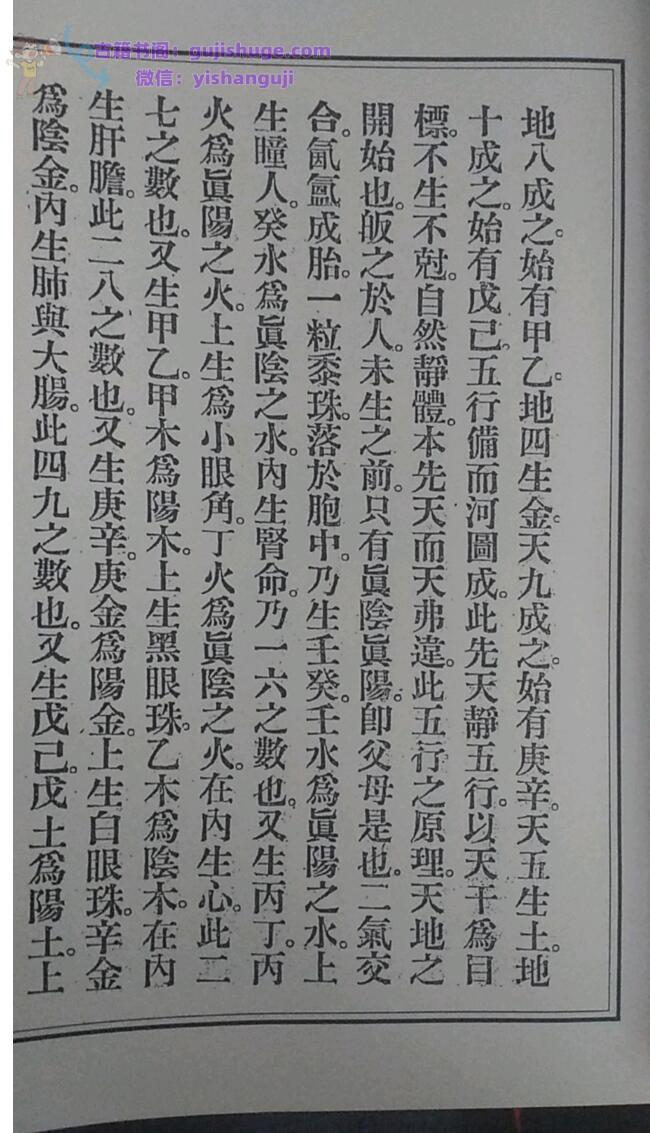 古籍书阁：gujishuge.com
微信：yishanguji
地八成之。始有甲乙。地四生金。天九成之。始有庚辛。天五生土。地
十成之。始有戊己。五行備而河圖成。此先天靜五行。以天干為目
標。不生不尅。自然靜體。本先天而天弗違。此五行之原理。天地之
開始也。皈之於人。未生之前。只有眞陰眞陽。卽父母是也。二氣交
合。氤氳成胎。一粒黍珠。落於胞中。乃生壬癸。壬水爲眞陽之水。上
生瞳人。癸水爲眞陰之水。內生腎命。乃一六之數也。又生丙丁。丙
火爲眞陽之火。上生爲小眼角。丁火爲眞陰之火。在內生心。此二
七之數也。又生甲乙。甲木爲陽木。上生黑眼珠。乙木爲陰木。在內
生肝膽。此二八之數也。又生庚辛。庚金爲陽金。上生白眼珠。辛金
爲陰金。內生肺與大腸。此四九之數也。又生戊己。戊土爲陽土。上